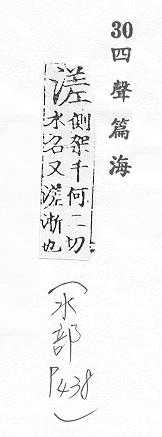 30四聲篇海
溠側架千何二切
水名又溠淅也
(水部
P438)